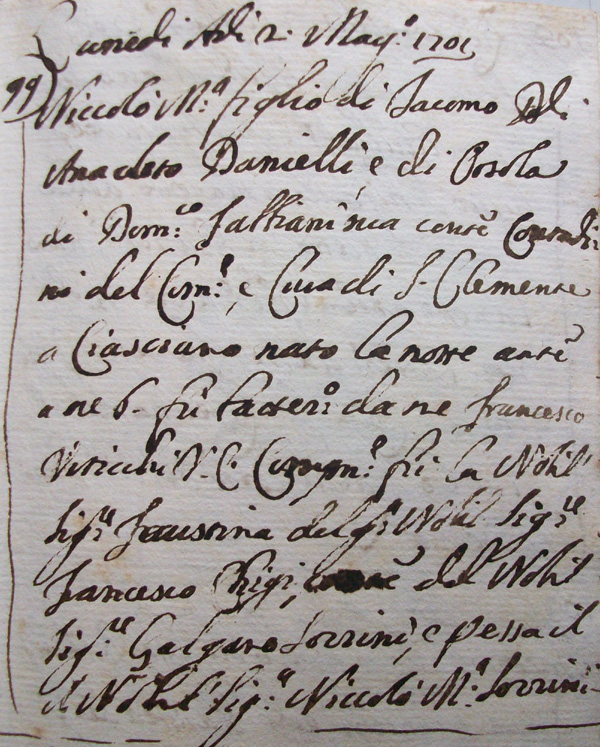 Lunedi Adi 2. Magg.o 1701
99) Niccolò M.a figlio di Jacomo di
Anacleto Danielli, e di Orsola
di Dom.co sua conte Contadi:
ni del Com.e, e Cura di S. Clemente
a Casciano nato la notte antè
a ne 6. fù batter.o da me Francesco
V. C. Comm.e fù la Nobil
Sig.ra Faustina del q. Nobil Sig.re
Francesco Chigi, del Nobil
Sig.re Galgano Sorrini, e p essa il
il Nobil Sig.re Niccolò M.a Sorrini